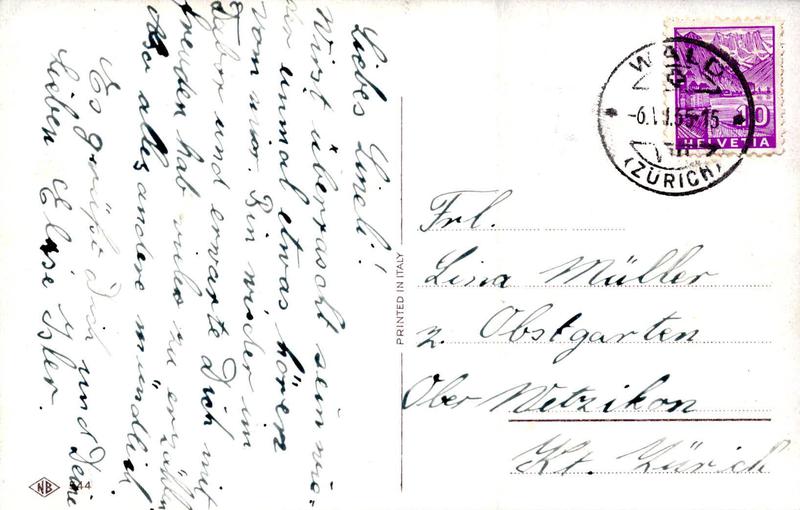 Liebes Lineli!
Wirst überrascht sein wie-
der einmal etwas hören
vom mir. Bin wieder im
Tabor und erwarte Dich mit
freuden hab viles zu erzählen
Also alles andere mündlich
Es grüßt Dich und Deine
Lieben Elise Isler.
PRINTED IN ITALY
NB
WALD
(ZÜRICH)
10
HELVETIA
Frl.
Lina Müller
z. Obstgarten
Ober Wetzikon
Kt. Zürich